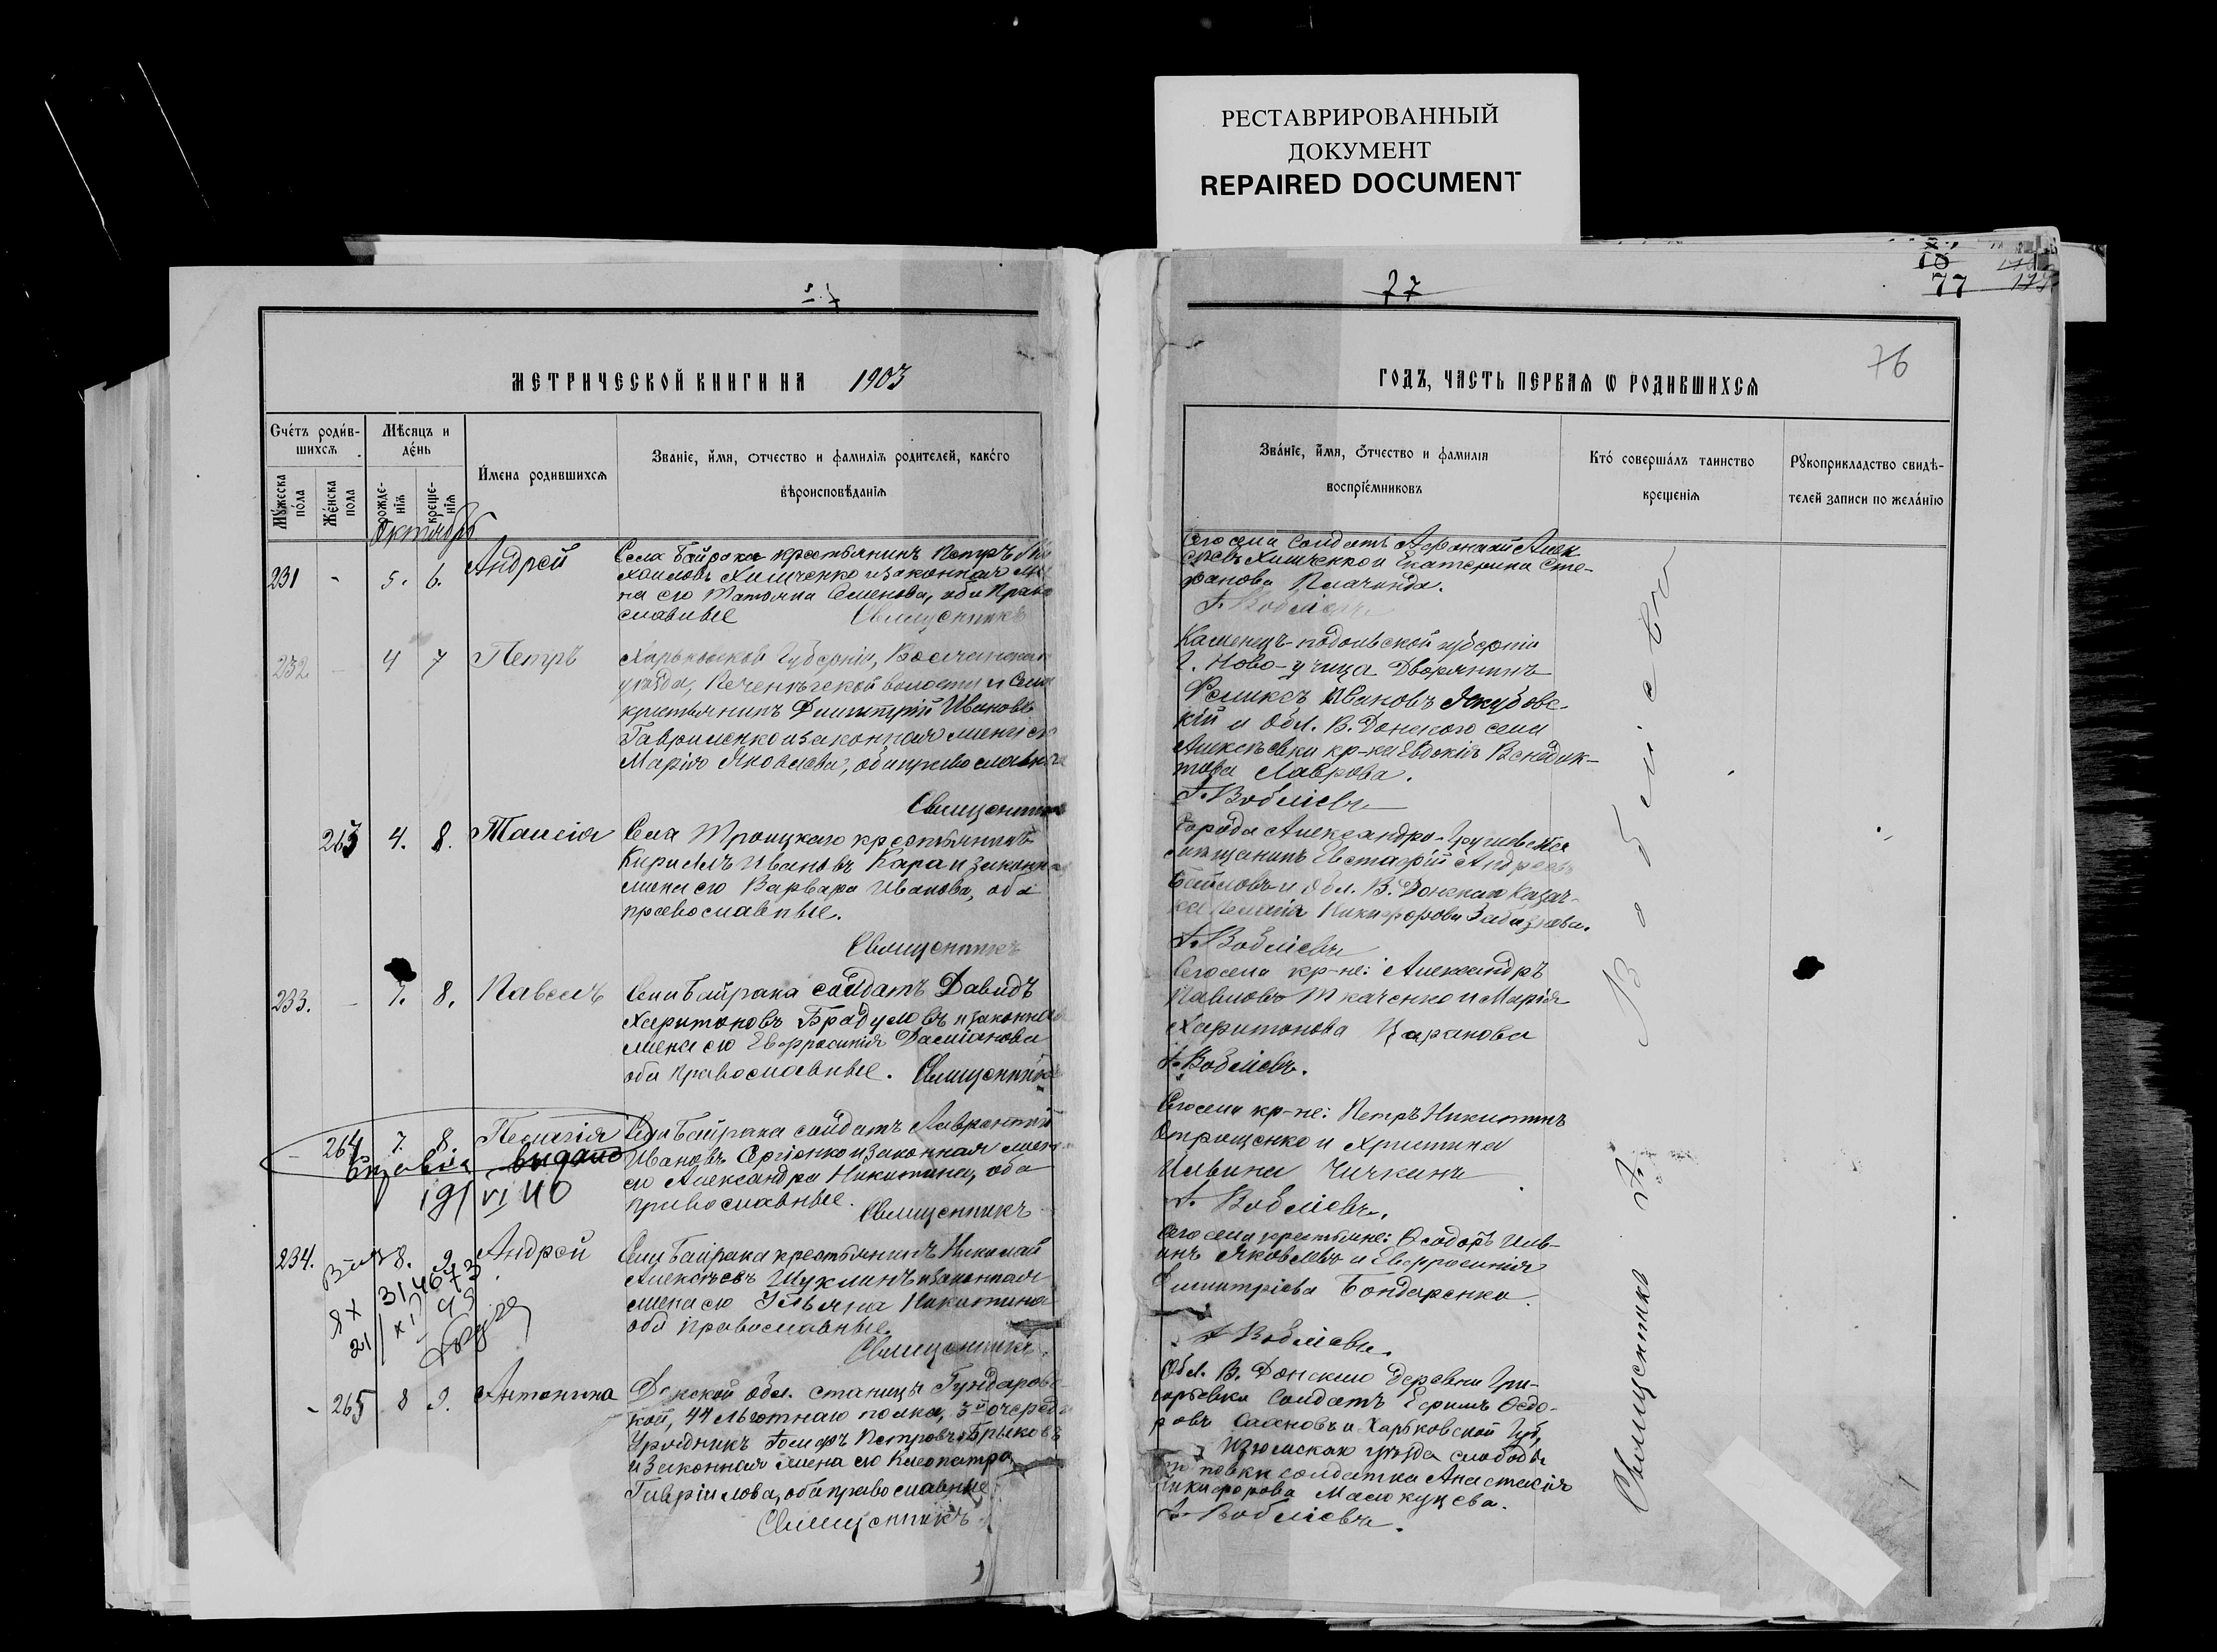 РЕСТАВРИРОВАННЫЙ
ДОКУМЕНТ
REPAIRED DOCUMENT
77
77
76
МЕТРИЧЕСКОЙ КНИГИ НА 1903
Сче́тъ роди́в-
шихсѧ
Мѣсяцъ и
де́нь
Мꙋ́жеска
по́ла
Же́нска
пола
рожде-
нїѧ
креще-
нїѧ
И́мена родившихсѧ
Званїе, и́мя, ѻтчество и фамилїѧ родителей, како́го
вѣроисповѣданїѧ
Октябрь
231 - 5. 6. Андрей
Села Байрака крестьянинъ Петръ
Химченко и законная
на его Татьяна Семенова, оба Право
славные Священникъ
232. - 4 7 Петръ
Харьковской Губернiи, Волчанскаго
уѣзда, Печенѣгской волости и села
крестьянинъ Димитрiй Ивановъ
Гавриленко и законная жена его
Марiя Яковлева, оба православные
Священникъ
263 4. 8. Таисiя
Села Троицкаго крестьянинъ
Кириллъ Ивановъ Кара и законная
жена его Варвара Иванова, оба
православные.
Священникъ
233. - 7. 8. Павелъ
Села Байрака солдатъ Давидъ
Харитоновъ Брадуловъ и законная
жена его Евфросинiя Дамiанова
оба православные. Священникъ
- 264 7. 8. Пелагiя
выдано
19/VI 40
Села Байрака солдатъ Лаврентiй
Ивановъ Сергiенко и законная жена
его Александра Никитина, оба
православные.
Священникъ
234. 8. 9. Андрей
314673
21/XI 49
Села Байрака крестьянинъ Николай
Алексѣевъ Шуклинъ и законная
жена его Ульяна Никитина
оба православные.
Священникъ.
- 265 8 9. Антонина
Донской обл. станицы Гундоровс-
кой, 44 Льготнаго полка, 3й очереди
Урядникъ Iосифъ Петровъ Брыковъ
и законная жена его Клеопатра
Гаврiилова, оба православные
Священникъ
ГОДЪ, ЧАСТЬ ПЕРВАѦ Ѡ РОДИВШИХСѦ
Зва́нїе, и́мя, ѻ́тчество и фамилїя
воспрїе́мниковъ
Кто́ соверша́лъ таинство
крещенїѧ
Рꙋкоприкладство свидѣ-
телей записи по жела́нїю
Сего села солдатъ Афанасiй Алек
сѣевъ Химченко и Екатерина Сте-
фанова Плачинда.
А. Воблiевъ
Каменецъ-подольской губернiи
г. Ново-ушица Дворянинъ
Феликсъ Ивановъ Якубовс-
кiй и Обл. В. Донского села
Алексѣевки кр-ка Евдокiя Венедик-
това Лаврова.
А. Воблiевъ
Города Александро-Грушевска
мѣщанинъ Евстафiй Андреевъ
и Обл. В. Донского казач-
ка Пелагiя Никифорова
А. Воблiевъ
Сего села кр-не: Александръ
Павловъ Ткаченко и Марiя
Харитонова Царакова
А. Воблiевъ.
Сего села кр-не: Петръ Никитинъ
Отрощенко и Христина
Ильина Чичкинъ
А. Воблiевъ.
Сего села крестьяне: Ѳеодоръ Иль-
инъ Яковлевъ и Евфросинiя
Димитрiева Бондаренко.
А. Воблiевъ.
Обл. В. Донского деревни Гри-
горьевки солдатъ Ефимъ Ѳедо-
ровъ и Харьковской Губ,
Изюмскаго уѣзда слободы
солдатка Анастасiя
Никифорова
А. Воблiевъ.
Священникъ А. Воблiевъ